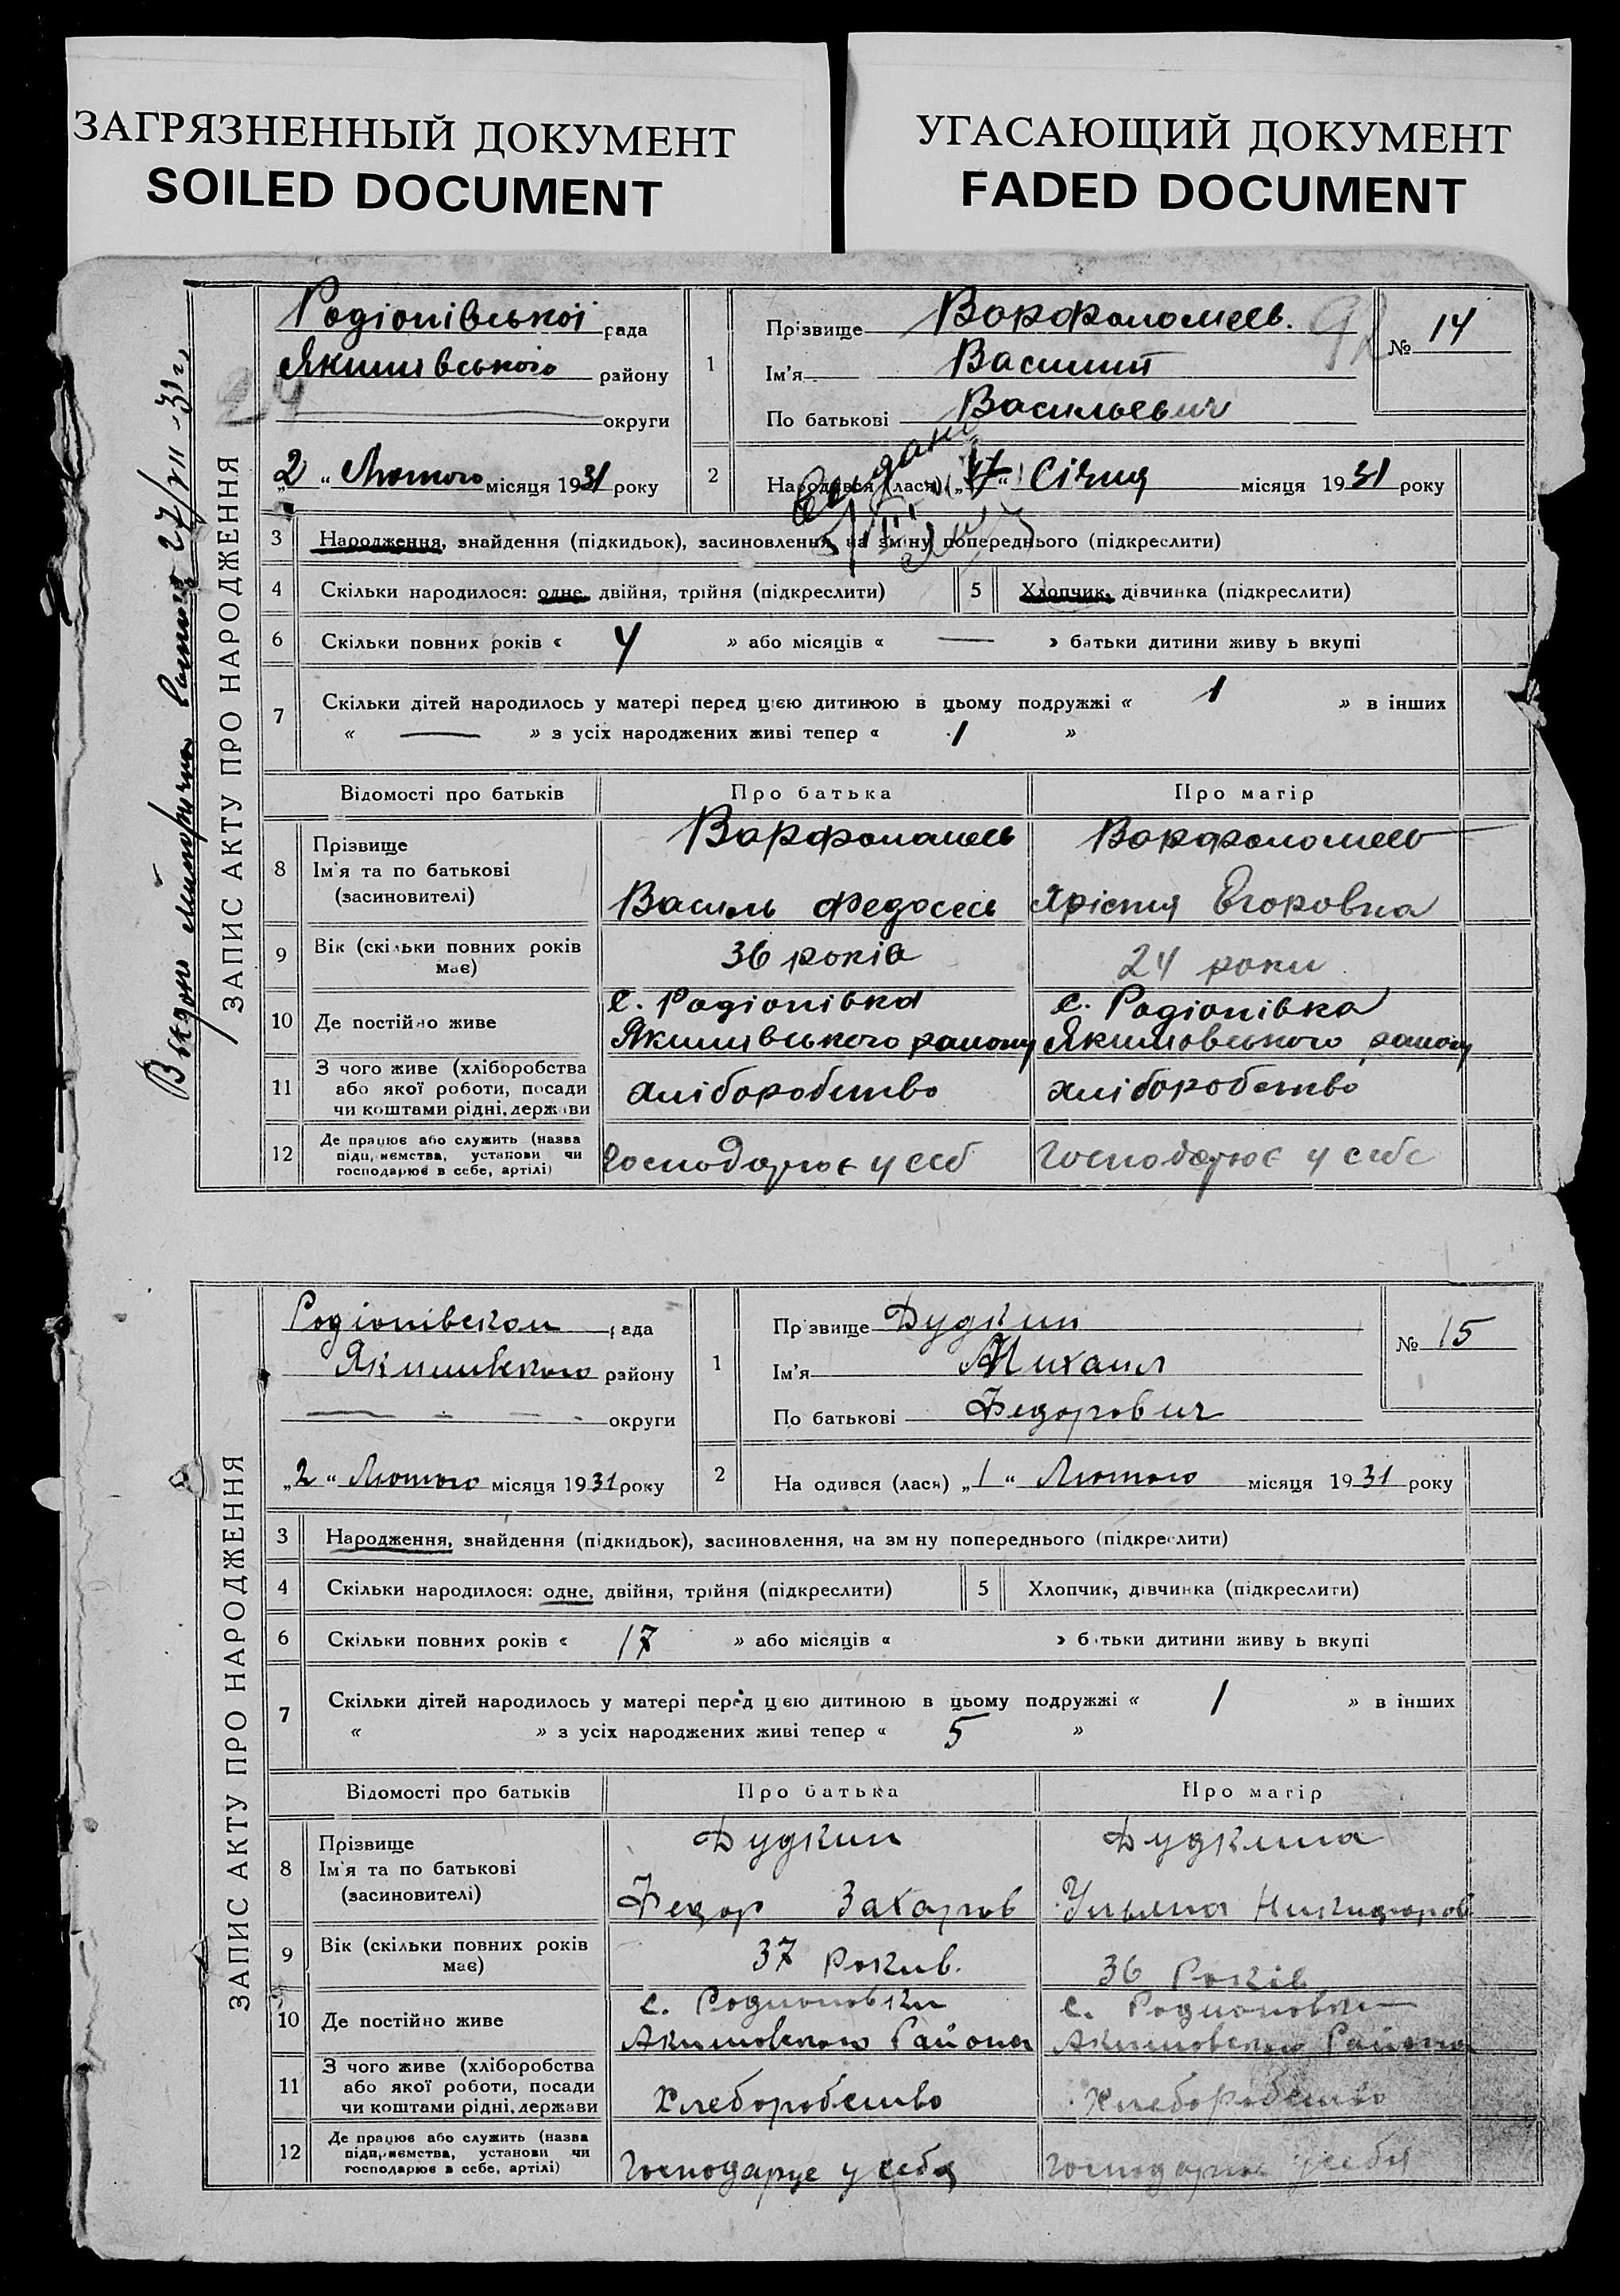 ЗАГРЯЗНЕННЫЙ ДОКУМЕНТ
SOILED DOCUMENT
УГАСАЮЩИЙ ДОКУМЕНТ
FADED DOCUMENT
ЗАПИС АКТУ ПРО НАРОДЖЕННЯ
Родіонівської рада
Якимівського району
округи
„2“ Лютого місяця 1931 року
1
Прізвище Ворфоломеев.
Ім'я Василий
По батькові Васильевич
№ 14
2
Народився (лася) „17“ Січня місяця 1931 року
3 Народження, знайдення (підкидьок), засиновлення, на зміну попереднього (підкреслити)
4 Скільки народилося: одне, двійня, трійня (підкреслити)
5 Хлопчик, дівчинка (підкреслити)
6 Скільки повних років « 4 » або місяців « — » батьки дитини живу ь вкупі
7 Скільки дітей народилось у матері перед цією дитиною в цьому подружжі « 1 » в інших
« — » з усіх народжених живі тепер « 1 »
Відомості про батьків Про батька Про матір
8 Прізвище
Ім'я та по батькові
(засиновителі)
Ворфоломеев
Василь Федосеев
Ворфоломеев
Хрістня Егоровна
9 Вік (скільки повних років
має)
36 років
24 роки
10 Де постійно живе
с. Родіонівка
Якимівського району
с. Родіонівка
Якимовського району
11 З чого живе (хліборобства
або якої роботи, посади
чи коштами рідні, держави
хліборобство
хліборобство
12 Де працює або служить (назва
підприємства, установи чи
господарює в себе, артілі)
Господарює у себ
Господарює у себе
ЗАПИС АКТУ ПРО НАРОДЖЕННЯ
Родіонівскои рада
Якимивского району
округи
„2“ Лютого місяця 1931 року
1
Пр звище Дудкин
Ім'я Михаил
По батькові Федорович
№ 15
2
На одився (лася) „1“ Лютого місяця 1931 року
3 Народження, знайдення (підкидьок), засиновлення, на зм ну попереднього (підкреслити)
4 Скільки народилося: одне, двійня, трійня (підкреслити)
5 Хлопчик, дівчинка (підкреслити)
6 Скільки повних років « 17 » або місяців « » б тьки дитини живу ь вкупі
7 Скільки дітей народилось у матері перед цією дитиною в цьому подружжі « 1 » в інших
« » з усіх народжених живі тепер « 5 »
Відомості про батьків Про батька Про матір
8 Прізвище
Ім'я та по батькові
(засиновителі)
Дудкин
Федор Захаров
Дудкина
Ульяна Никифоров
9 Вік (скільки повних років
має)
37 Рокив.
36 Років
10 Де постійно живе
с. Родионовки
Акимовского Района
с. Родионовки
Акимовского Района
11 З чого живе (хліборобства
або якої роботи, посади
чи коштами рідні, держави
Хлеборобство
Хлеборобство
12 Де працює або служить (назва
підприємства, установи чи
господарює в себе, артілі)
Господаруе у себя
Господарюе у себя